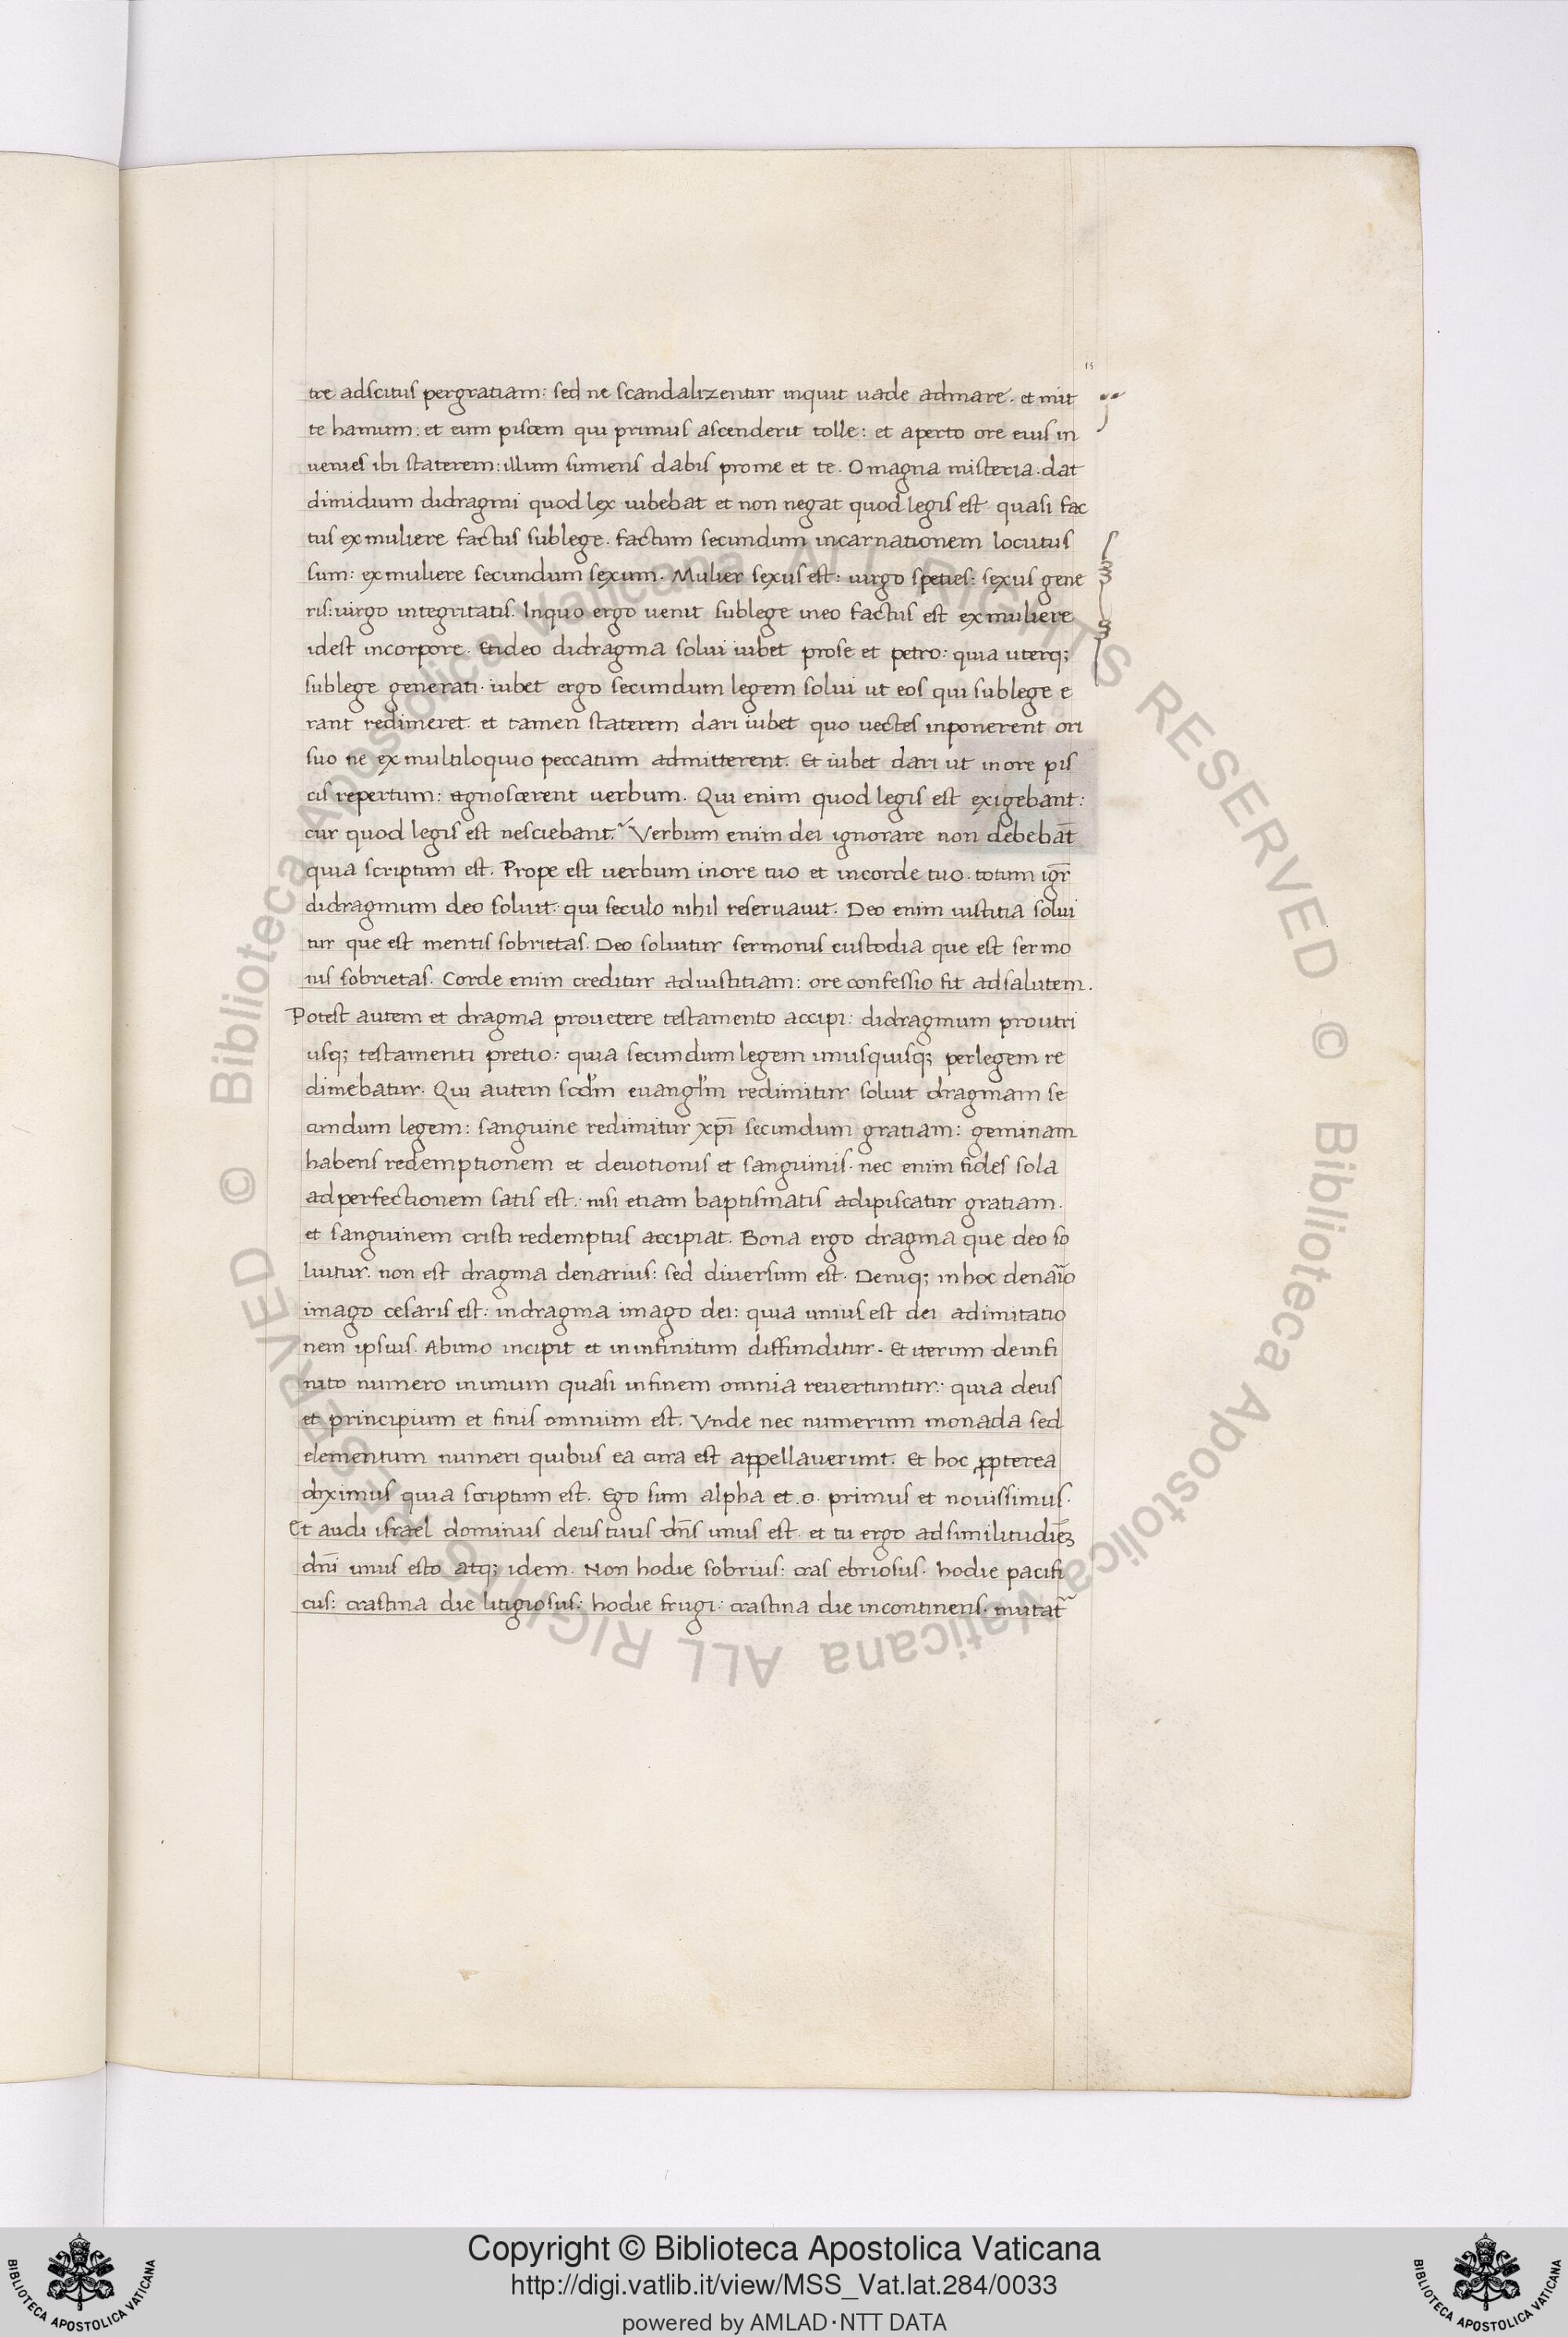 15
tre adscitus pergratiam: sed ne scandalizentur inquit uade admare. et mit
te hamum: et eum piscem qui primus ascenderit tolle: et aperto ore eius in
uenies ibi staterem: illum sumens dabis prome et te. O magna misteria. dat
dimidium didragmi quod lex iubebat et non negat quod legis est. quasi fac
tus ex muliere factus sublege. factum secundum incarnationem locutus
sum: ex muliere secundum sexum. Mulier sexus est: uirgo speties: sexus gene
ris: uirgo integritatis. Inquo ergo uenit sublege ineo factus est ex muliere
idest incorpore. Etideo didragma solui iubet prose et petro: quia uterq;
sublege generati. iubet ergo secundum legem solui ut eos qui sublege e
rant redimeret. et tamen staterem dari iubet quo uectes inponerent ori
suo ne ex multiloquio peccatum admitterent. Et iubet dari ut inore pis
cis repertum: agnoscerent uerbum. Qui enim quod legis est exigebant:
cur quod legis est nesciebant. Verbum enim dei ignorare non debebāt
quia scriptum est. Prope est uerbum inore tuo et incorde tuo. totum igr̄
didragmum deo soluit. qui seculo nihil reseruauit. Deo enim iustitia solui
tur que est mentis sobrietas. Deo soluitur sermonis custodia que est sermo
nis sobrietas. Corde enim creditur adiustitiam: ore confessio fit adsalutem.
Potest autem et dragma prouetere testamento accipi: didragmum proutri
usq; testamenti pretio: quia secundum legem unusquisq; perlegem re
dimebatur. Qui autem scdm̄ euanglm̄ redimitur soluit dragmam se
cundum legem: sanguine redimitur xpī secundum gratiam: geminam
habens redemptionem et deuotionis et sanguinis. nec enim fides sola
ad perfectionem satis est. nisi etiam baptismatis adipiscatur gratiam.
et sanguinem cristi redemptus accipiat. Bona ergo dragma que deo so
luitur. non est dragma denarius: sed diuersum est. Deniq; inhoc denaīo
imago cesaris est: indragma imago dei: quia unius est dei adimitatio
nem ipsius. Abuno incipit et ininfinitum diffunditur. Et iterum deinfi
nito numero inunum quasi infinem omnia reuertuntur: quia deus
et principium et finis omnium est. Vnde nec numerum monada sed
elementum numeri quibus ea cura est appellauerunt. Et hoc ꝓpterea
diximus quia scriptum est. Ego sum alpha et .o. primus et nouissimus.
Et audi israel dominus deus tuus dn̄s unus est. et tu ergo adsimilitudīeꝫ
dnī unus esto atq; idem. Non hodie sobrius: cras ebriosus. hodie pacifi
cus: crastina die litigiosus: hodie frugi: crastina die incontinens. mutat᷑
Copyright © Biblioteca Apostolica Vaticana
http://digi.vatlib.it/view/MSS_Vat.lat.284/0033
powered by AMLAD·NTT DATA
BIBLIOTECA APOSTOLICA VATICANA
BIBLIOTECA APOSTOLICA VATICANA
© Biblioteca Apostolica Vaticana ALL RIGHTS RESERVED © Biblioteca Apostolica Vaticana ALL RIGHTS RESERVED